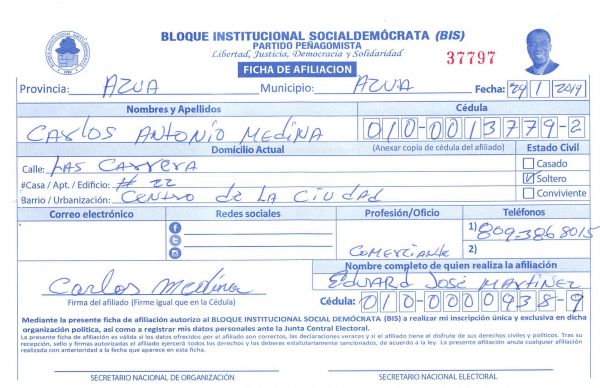 BLOQUE INSTITUCIONAL SOCIALDEMÓCRATA (BIS)
PARTIDO PEÑAGOMISTA
Libertad, Justicia, Democracia y Solidaridad
37797
FICHA DE AFILIACION
Provincia: AZUA Municipio: AZUA Fecha: 29/1/2019
Nombres y Apellidos Cédula
CARLOS ANTONIO MEDINA 010-0013779-2
Domicilio Actual (Anexar copia de cédula del afiliado) Estado Civil
Calle: LAS CARRERA Casado
#Casa / Apt. / Edificio: # 22 Soltero
Barrio / Urbanización: CENTRO DE LA CIUDAD Conviviente
Correo electrónico Redes sociales Profesión/Oficio Teléfonos
1) 809-386 8015
COMERCIANTE 2)
Nombre completo de quien realiza la afiliación
Carlos Medina EDUARD JOSÉ MARTINEZ
Firma del afiliado (Firme igual que en la Cédula) Cédula: 010-0000938-9
Mediante la presente ficha de afiliación autorizo al BLOQUE INSTITUCIONAL SOCIAL DEMÓCRATA (BIS) a realizar mi inscripción única y exclusiva en dicha
organización política, así como a registrar mis datos personales ante la Junta Central Electoral.
La presente ficha de afiliación es válida si los datos ofrecidos por el afiliado son correctos, las declaraciones veraces y si el afiliado tiene el disfrute de sus derechos civiles y políticos. Tras su
recepción, sello y firmas autorizadas el afiliado ejercerá todos los derechos y los deberes estatutariamente sancionados, de acuerdo a la ley. La presente afiliación anula cualquier afiliación
realizada con anterioridad a la fecha que aparece en esta ficha.
SECRETARIO NACIONAL DE ORGANIZACIÓN SECRETARIO NACIONAL ELECTORAL